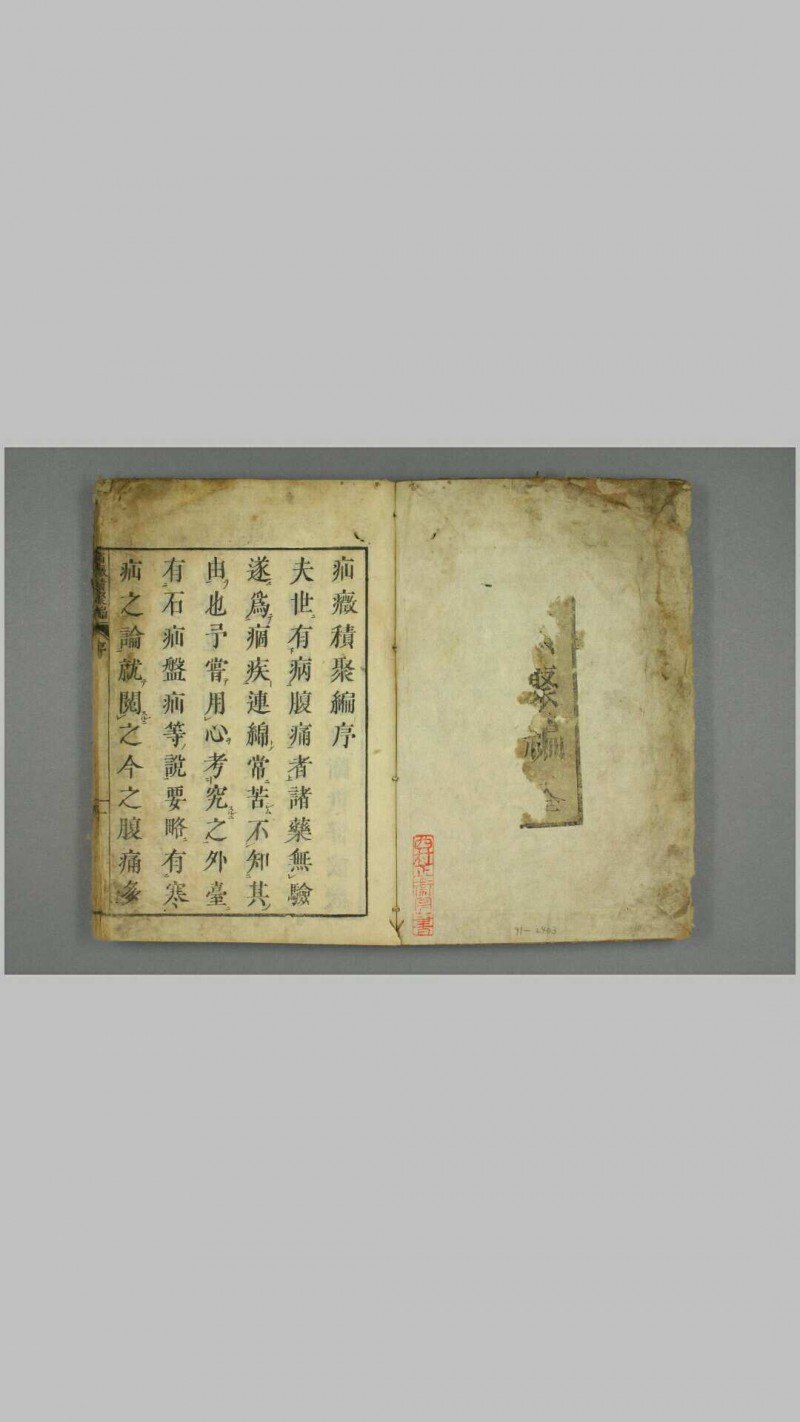 聚編 全
西村
書
疝癥積聚編序
夫世有病腹痛者諸藥無驗
遂爲痼疾連綿常苦不知其
由也予嘗用心考究之外臺
有石疝盤疝等說要略有寒
疝之論就閱之今之腹痛多
序